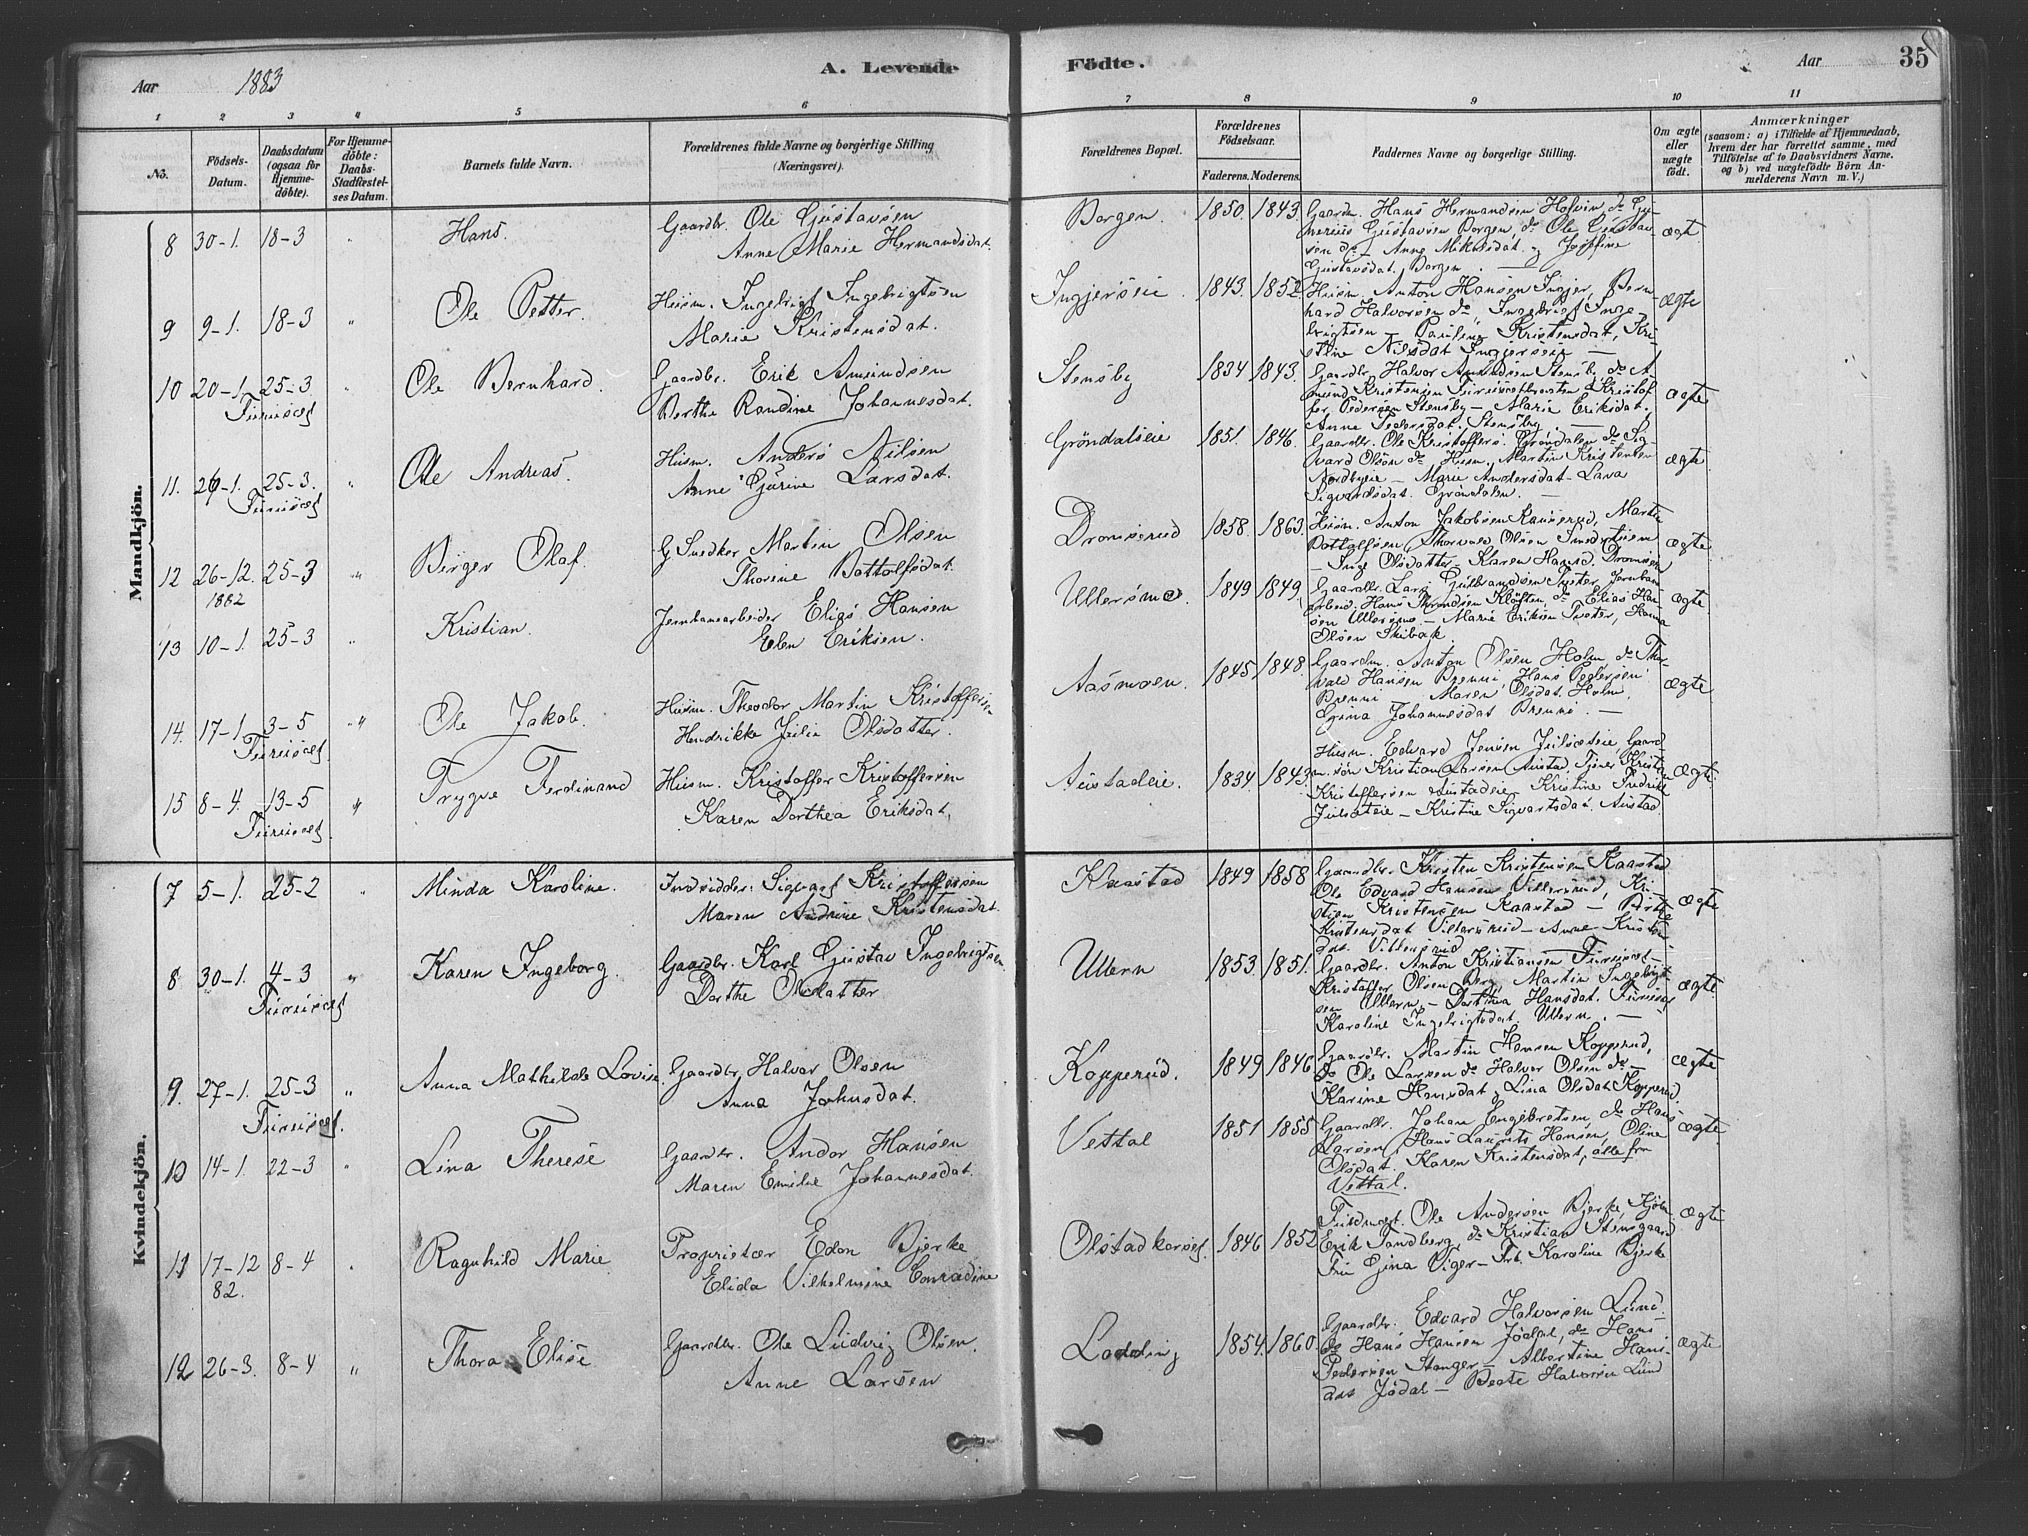 Aar 1883
A. Levende Födte.
Aar 35
1 2 3 4 5 6 7 8 9 10 11
No.
Födsels-Datum.
Daabsdatum (ogsaa for Hjemme-döbte).
For Hjemme-döbte: Daabs-Stadfæstel-ses Datum.
Barnets fulde Navn.
Forældrenes fulde Navne og borgerlige Stilling (Næringsvei).
Forældrenes Bopæl.
Forældrenes Födselsaar.
Faderens. Moderens.
Faddernes Navne og borgerlige Stilling.
Om ægte eller uægte födt.
Anmærkninger
(saasom: a) i Tilfælde af Hjemmedaab, hvem der har forrettet samme, med Tilföielse af to Daabsvidners Navne, og b) ved uægtefödte Börn An-melderens Navn m. V.)
Mandkjön.
8 30-1. 18-3 " Hans. Gaardbr. Ole Gustavsen
Anne Marie Hermansdat. Borgen. 1850. 1843. Gaardm. Hans Hermandsen Holvin, do
Gustavsen Borgen, do Ole Gustav-
sen do - Anne Mikkelsdat. Josefine
Gustavsdat. Borgen. ægt.
9 9-1. 18-3 " Ole Petter. Husm. Ingebrigt Ingebrigtsen
Marie Kristensdat. Ingjerseie. 1843. 1852. Husm. Anton Hansen Ingjer, Bern
hard Halvorsen do, Ingebrigt Inge
brigtsen Pauline Kristensdat, Kri
stine Nilsdat Ingjerseie - Ægte
10 20-1. 25-3 " Furuset Ole Bernhard. Gaardbr. Erik Amundsen
Berthe Randine Johannesdat. Stensby 1834 1843. Gaardbr. Halvor Amundsen Stensby do A-
mund Kristensen Kristof
fer Pedersen Stensby - Marie Eriksdat.
Anne Pedersdat. Stensby. - ægte
11. 26-1. 25-3. " Furuset Ole Andreas. Husm. Anders Nilsen
Anne Gurine Larsdat. Gröndalseie 1851. 1846. Gaardbr. Ole Kristoffers. Gröndalen do Sig-
vard Olsen do Husm. Martin Kristensen
Nordbyeie - Marie Andersdat - Lava
Sigvardsdat. Gröndalen. - ægte
12 26-12. 1882 25-3 " Birger Olaf. G Snedker Martin Olsen
Thorine Bottolfsdat. Dromserud 1858. 1863 Husm. Anton Jakobsen Martin
Bottolfsen, Thorvald Olsen
- Inge Olsdatter - Karen Hansd. ægte
13 10-1. 25-3 " Kristian. Jernbanearbeider Elias Hansen
Elen Eriksen. Ullersmo. 1849 1849. Gaardbr. Lars Gulbrandsen Jernban
arbeid. Hans Throndsen Klöften, do Elias Han-
sen Ullersmo - Marie Eriksen Hanna
Olsen Skibak. ægte
14. 17-1. 3-5 " Furuset Ole Jakob. Husm. Theodor Martin Kristoffersen
Hendrikke Julie Olsdatter. Aasmoen. 1845 1848. Gaardm. Anton Olsen Holm, do Thor
vald Hansen Brenni, Hans Pedersen
Brenni Maren Olsdat. Holm.
Gina Johannesdat Brenni. - ægte
15 8-4. 13-5 " Furuset Trygve Ferdinand Husm. Kristoffer Kristoffersen
Karen Dorthea Eriksdat. Austadeie. 1834. 1843. Husm. Edvard Jensen Julseteie, Gaard
m. sön Kristian Larsen Austad Tjener Kristen
Kristoffersen Austadeie Kristine Fredrikke
Julseteie - Kristine Sigvartsdat. Austad. Ægte.
Kvindekjön.
7 5-1. 25-2 " Minda Karoline. Indsidder Sigvart Kristoffersen
Maren Andrine Kristensdat. Kaastad 1849 1858 Gaardbr. Kristen Kristensen Kaastad
Ole Edvard Hansen Villersrud, Kri
stian Kristensen Kaastad - Birthe
Kristensdat Villersrud - Anne Kristen
dat. Villersrud ægte
8 30-1. 4-3 " Furuset Karen Ingeborg. Gaardbr. Karl Gustav Ingebrigtsen
Dorthe Olsdatter Ullern 1853. 1851. Gaardbr. Anton Kristiansen Furuset -
Kristoffer Olsen Berg, Martin Ingebrigt
sen Ullern - Dorthea Hansdat. Furuset
Karoline Ingebrigtsdat. Ullern. - ægte.
9. 27-1. 25-3 " Furuset. Anna Mathilde Lovise Gaardbr. Halvor Olsen
Anna Johnsdat. Kopperud. 1849 1846 Gaardbr. Martin Hansen Kopperud,
do Ole Larsen do Halvor Olsen do -
Karine Hansdat, Lina Olsdat Kopperud. Ægte
10 14-1. 22-3 " Lina Therese Gaardbr. Andor Hansen
Maren Emilie Johannesdat. Vettal 1851 1855 Gaardbr. Johan Engebretsen, do Hans
Larsen, Hans Laurits Hansen, Oline
Olsdat. Karen Kristensdat, alle fra
Vettal. ægte
11 17-12 82. 8-4 " Ragnhild Marie Proprietær Edon Bjerke
Elida Vilhelmine Conradine Olstad kerset. 1846 1852 Fuldmægt. Ole Andersen Bjerke Kjöbm
Erik Sandberg, do Kristian Stensgaard
Fru Gina Viger - Frk. Karoline Bjerke Ægte
12 26-3. 8-4 " Thora Elise Gaardbr. Ole Ludvig Olsen.
Anne Larsen Lodding 1854. 1860. Gaardbr. Edvard Halvorsen Lund.
do Hans Hansen Jödal, do Hans
Pedersen Stanger - Albertine Hans-
dat Jödal - Beate Halvorsen Lund ægte